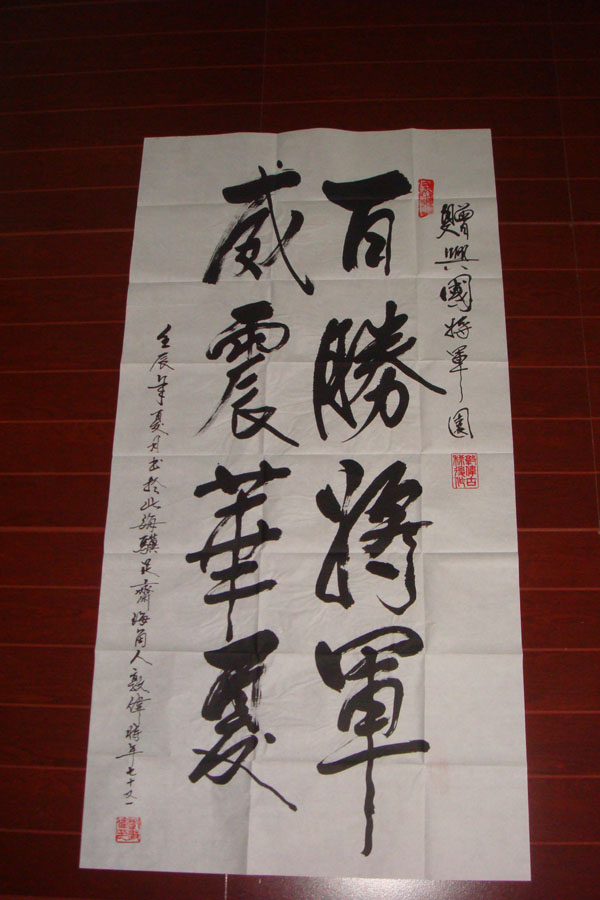 贈興國將軍園
百勝將軍
威震華夏
壬辰年夏月書於北海驥足齋海角人敦偉時年七十又一